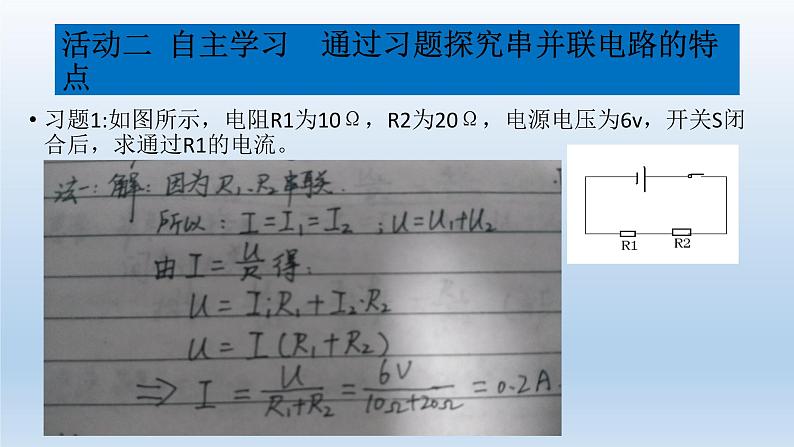 活动二 自主学习 通过习题探究串并联电路的特
点
• 习题1:如图所示，电阻R1为10Ω，R2为20Ω，电源电压为6v，开关S闭
合后，求通过R1的电流。
法一:解:因为R₁、R₂串联.
所以: I=I₁=I₂ ;U=U₁+U₂
由 I=U/R 得:
U=I₁R₁+I₂·R₂
U=I(R₁+R₂)
⇒ I=U/(R₁+R₂)=6V/(10Ω+20Ω)=0.2A.
R1 R2